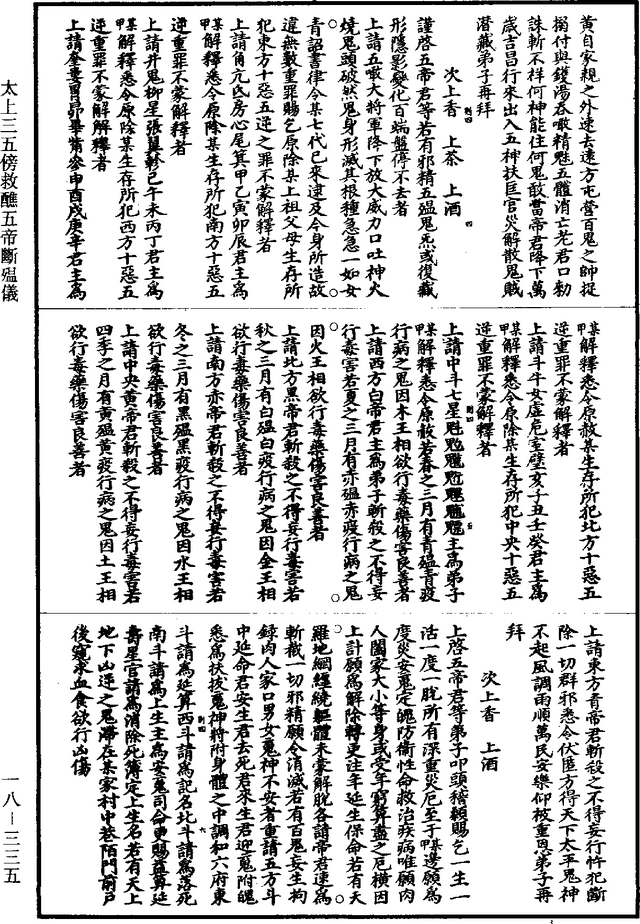 黃自家親之外速去遠方屯營百鬼之帥捉
搦付與鑊湯吞噉精魅五體消亡老君口勑
誅斬不祥何神能住何鬼敢當帝君降下萬
歲吉昌行來出入五神扶匡官災解散鬼賊
潜藏弟子再拜
次上香 上茶 上酒
謹啓五帝君等若有邪精五瘟鬼炁或復藏
形隱影變化百端盤停不去者
上請五噉大將軍降下放大威力口吐神火
燒鬼頭破然鬼身形滅其根種急急一如女
青詔書律令某七代已來逮及今身所造故
違無數重罪賜乞原除某上祖父母生存所
犯東方十惡五逆之罪不蒙解釋者
上請角亢氐房心尾箕甲乙寅卯辰君主爲
某甲解釋悉令原除某生存所犯南方十惡五
逆重罪不蒙解釋者
上請井鬼柳星張翼軫巳午未丙丁君主爲
某甲解釋悉令原除某生存所犯西方十惡五
逆重罪不蒙解釋者
上請奎婁胃昴畢觜參申酉戌庚辛君主爲
某甲解釋悉令原赦某生存所犯北方十惡五
逆重罪不蒙解釋者
上請斗牛女虛危室壁亥子丑壬癸君主爲
某甲解釋悉令原除某生存所犯中央十惡五
逆重罪不蒙解釋者
上請中斗七星魁䰢魓䰣魒主爲弟子
某甲解釋悉令原散若春之三月有青瘟青疫
行病之鬼因木王相欲行毒藥傷害良善者
上請西方白帝君主爲弟子斬殺之不得妄
行毒害若夏之三月有赤瘟赤疫行病之鬼
因火王相欲行毒藥傷害良善者
上請北方黑帝君斬殺之不得妄行毒害若
秋之三月有白瘟白疫行病之鬼因金王相
欲行毒藥傷害良善者
上請南方赤帝君斬殺之不得妄行毒害若
冬之三月有黑瘟黑疫行病之鬼因水王相
欲行毒藥傷害良善者
上請中央黃帝君斬殺之不得妄行毒害若
四季之月有黃瘟黃疫行病之鬼因土王相
欲行毒藥傷害良善者
上請東方青帝君斬殺之不得妄行忤犯斷
除一切群邪悉令伏匿方得天下太平鬼神
不起風調雨順萬民安樂仰被重恩弟子再
拜
次上香 上酒
上啓五帝君等弟子叩頭稽顙賜乞一生一
活一度一脫所有深重災厄至于某甲邊願爲
度災安䰟定魄防衞性命救治疾病唯願肉
人闔家大小等身或受年窮筭盡之厄横因
上計願爲解除轉更注年延生保命若有天
羅地綱經繞軀體未蒙解脫各請帝君速爲
斬截一切邪精願令消滅若有百鬼妄生拘
録肉人家口男女䰟神不安者重請五方斗
中延命君安生君去死君來生君迎䰟附魄
悉爲扶拔鬼神將附身體之中調和六府東
斗請爲延算西斗請爲記名北斗請爲落死
南斗請爲上生主爲安䰟司命更賜益算延
壽星官請爲消除死簿定上生名若有天上
地下凶逆之鬼滯在某家村中巷陌門前戶
後窺求血食欲行凶傷
太上三五傍救醮五帝斷瘟儀
一八—三三五